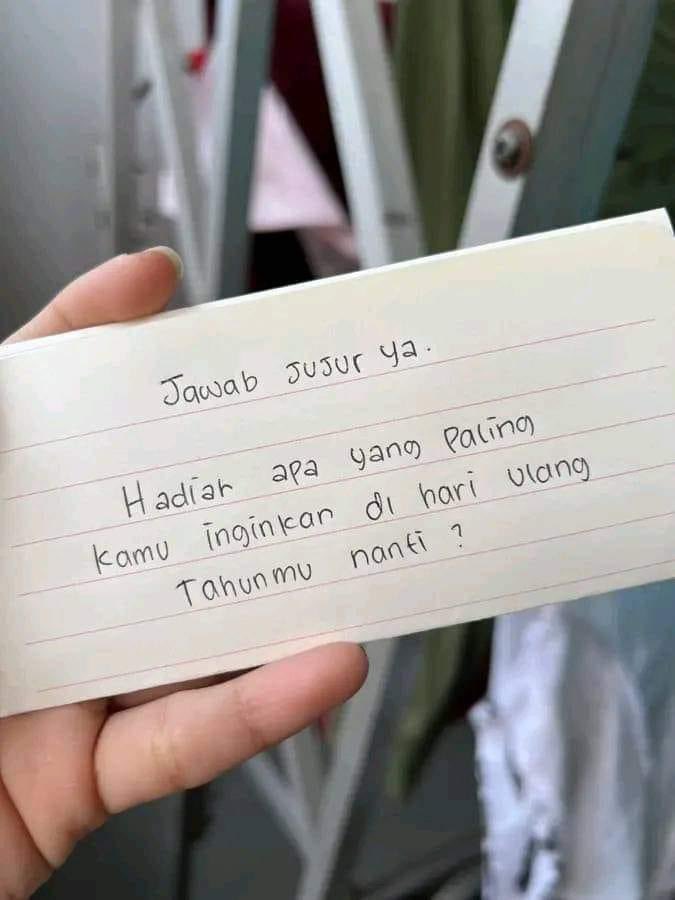 Jawab jujur ya.
Hadiah apa yang paling
kamu inginkan di hari ulang
Tahunmu nanti ?